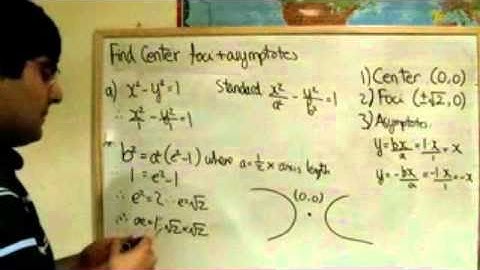 Find Center foci + asymptotes
a) x² - y² = 1 Standard x²/a² - y²/b² = 1
∴ x²/1 - y²/1 = 1
b² = a²(e²-1) where a = ½ × axis length
1 = e² - 1
∴ e² = 2 ∴ e = √2
∴ ae = 1·√2 = √2
1) Center (0,0)
2) Foci (±√2, 0)
3) Asymptotes
y = bx/a = 1x/1 = x
y = -bx/a = -1x/1 = -x
(0,0)